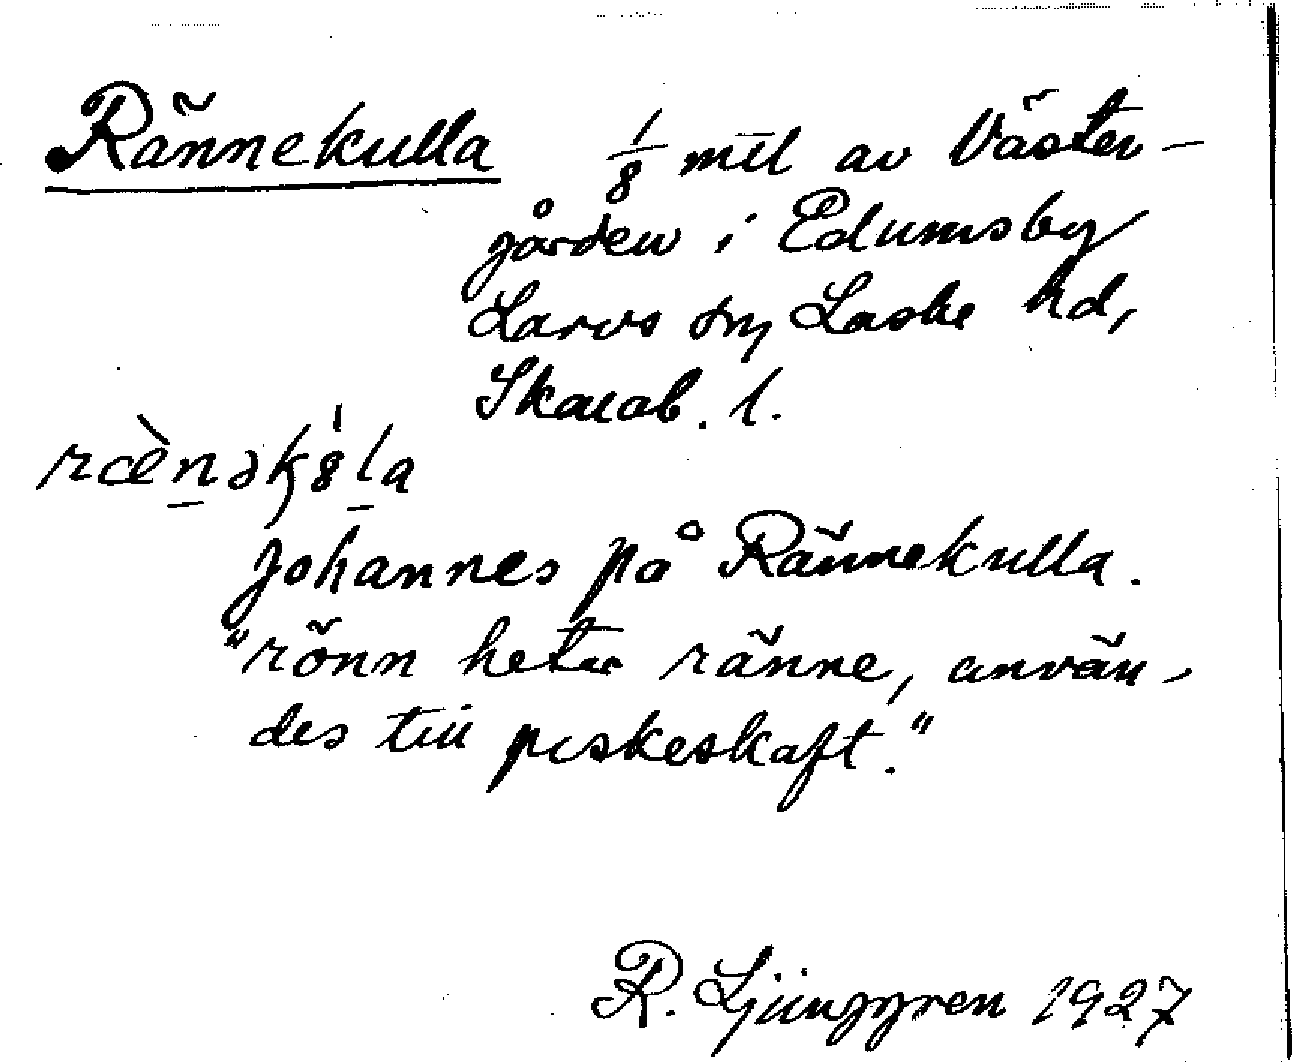 Rännekulla 1/8 mil av Väster-
gården i Edumsby
Larvs sn, Laske hd,
Skarab. l.
ræ̀nək8́la
Johannes på Rännekulla.
"rönn heter ränne, använ-
des till piskeskaft."
R. Ljunggren 1927